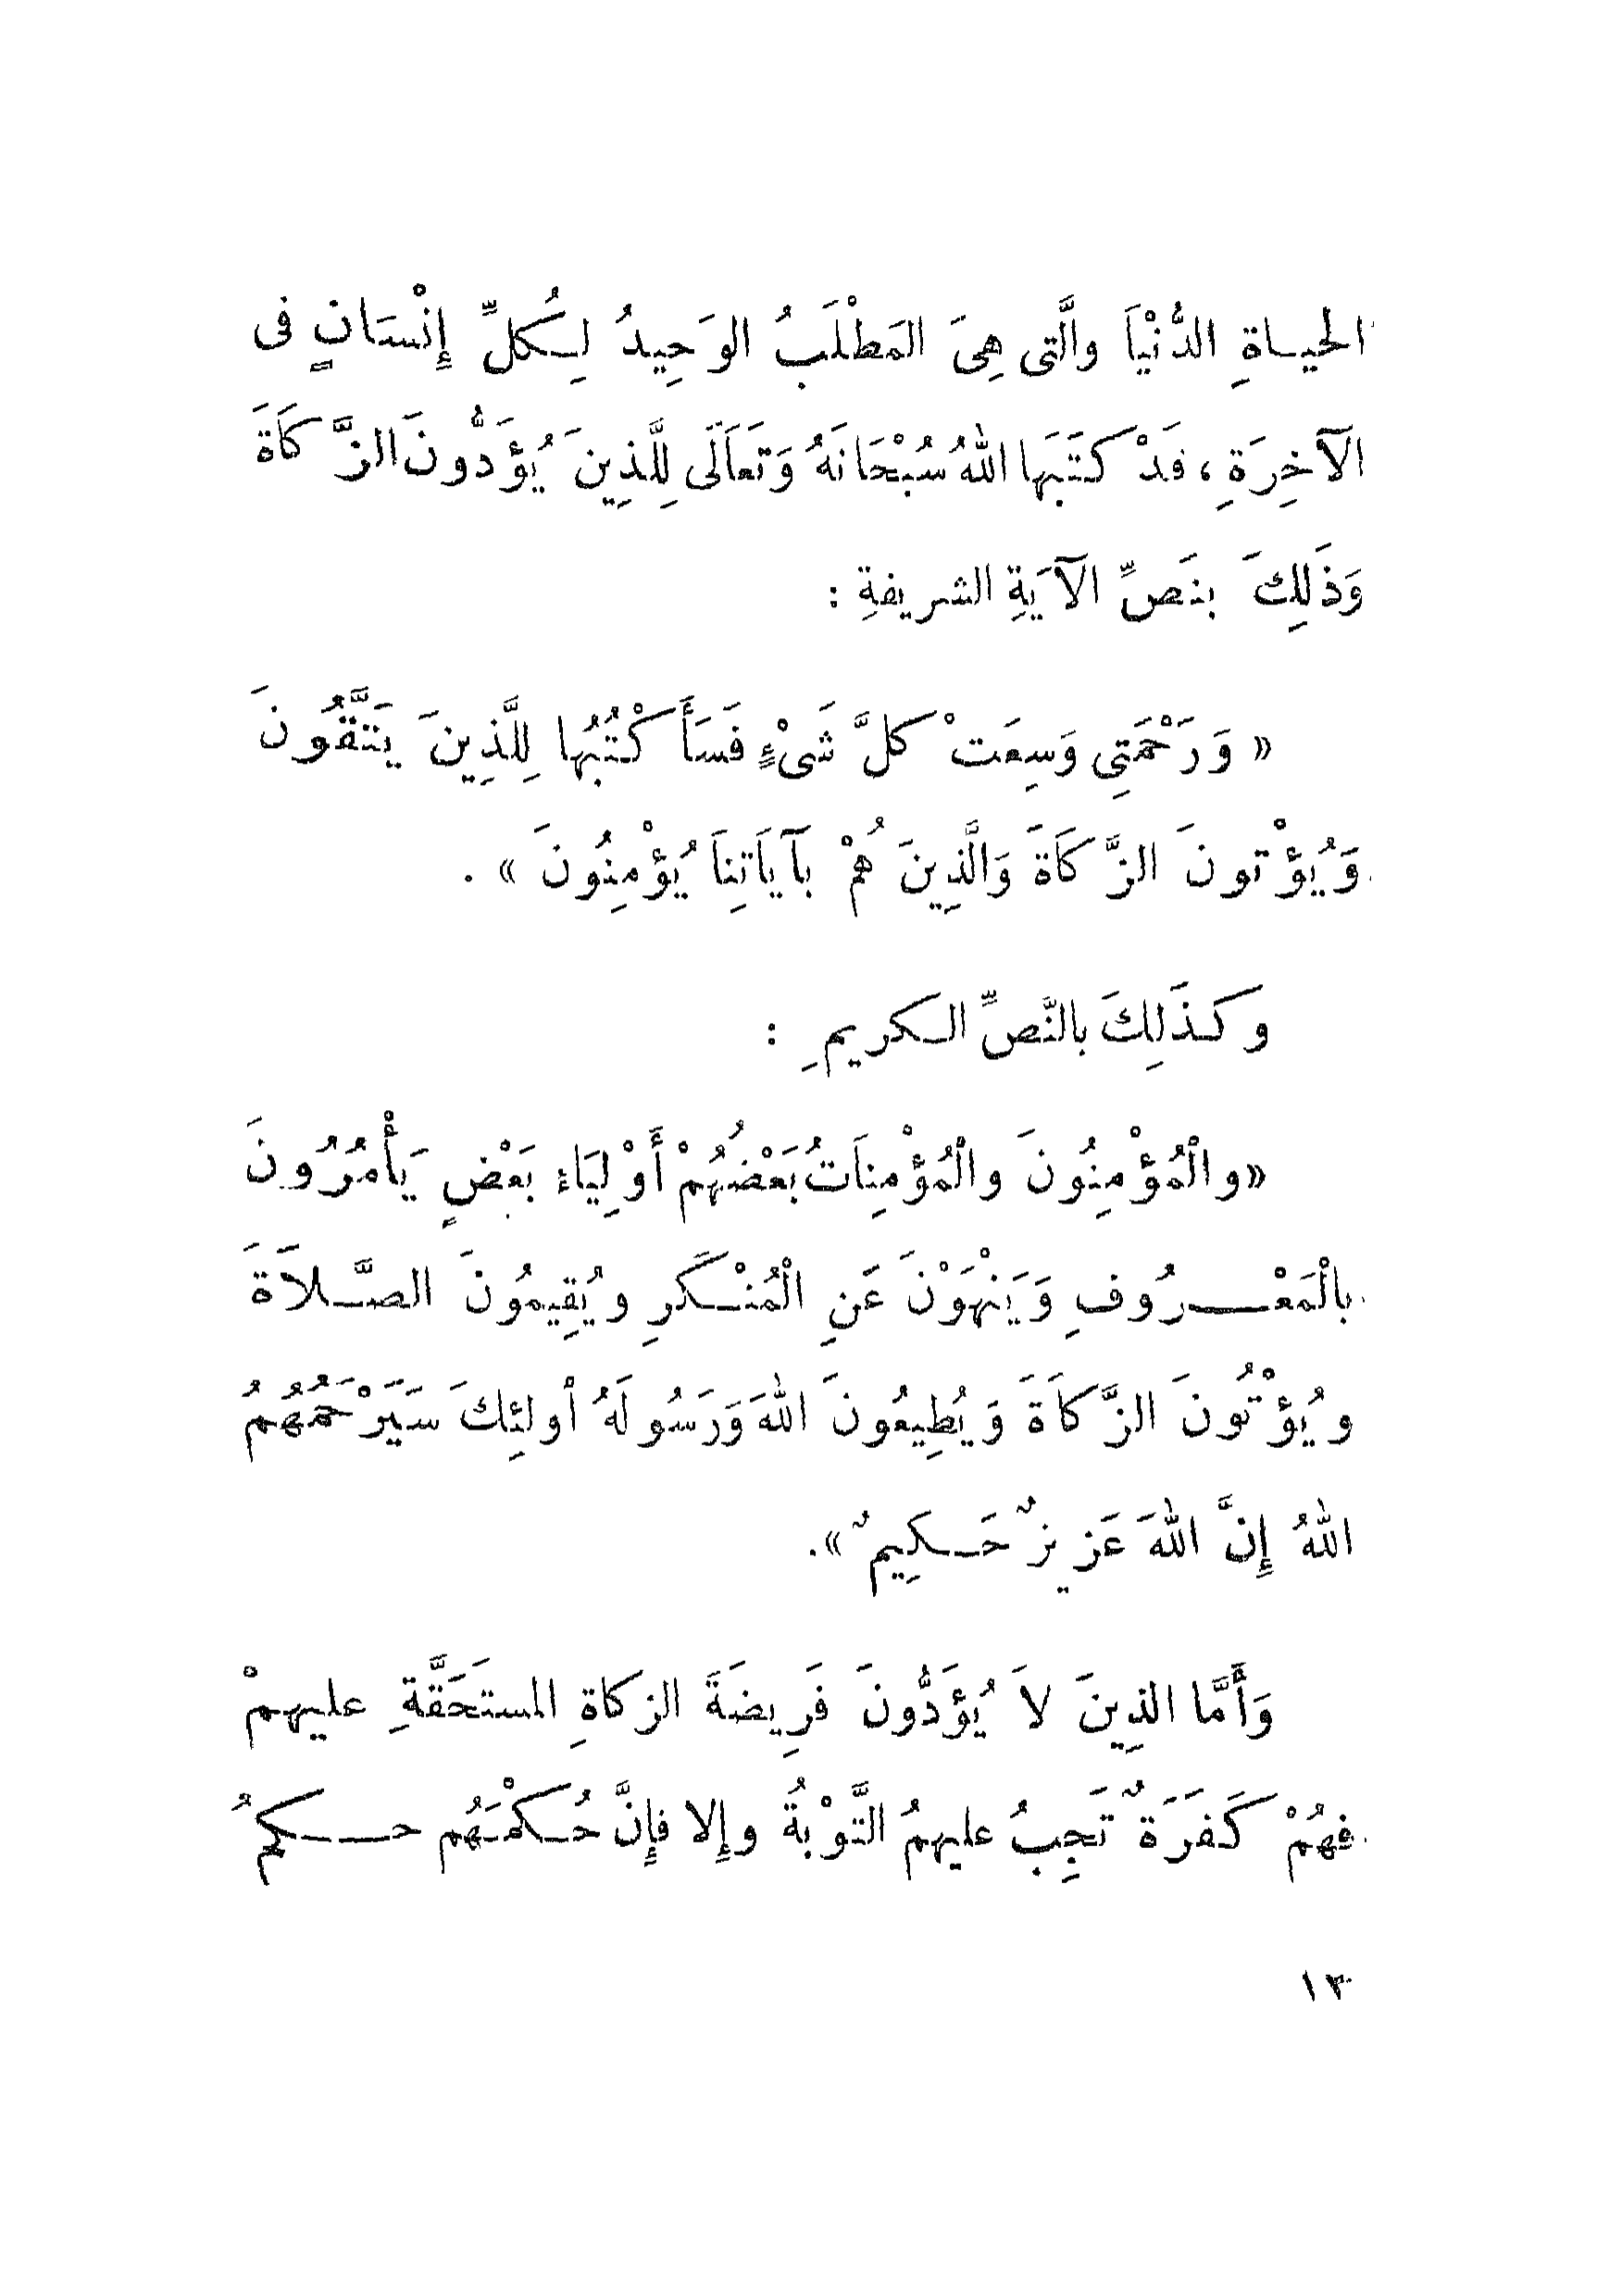 الحيـاةِ الدُّنْيَا والَّتى هِىَ المَطْلَبُ الوَحِيدُ لِـكُلِّ إِنْسَانٍ فى
الآخِرَةِ ، فَدْ كَتَبَها اللهُ سُبْحَانَهُ وَتَعَالَى لِلَّذِينَ يُؤَدُّونَ الزَّكَاةَ
وَذَلِكَ بنَصِّ الآيَةِ الشريفةِ :
« وَرَحْمَتِى وَسِعَتْ كلَّ شَىْءٍ فَسَأَكْتُبُها لِلَّذِينَ يَتَّقُونَ
وَيُؤْتونَ الزَّكَاةَ وَالَّذِينَ هُمْ بآيَاتِنَا يُؤْمِنُونَ » .
وكَذَلِكَ بالنَّصِّ الـكريمِ :
«والْمُؤْمِنُونَ والْمُؤْمِنَاتُ بَعْضُهُمْ أَوْلِيَاء بَعْضٍ يَأْمُرُونَ
بالْمَعْـــرُوفِ وَيَنْهَوْنَ عَنِ الْمُنْـكَرِ ويُقِيمُونَ الصَّـلاَةَ
ويُؤْتُونَ الزَّكَاةَ وَيُطِيعُونَ اللهَ وَرَسُولَهُ أولئِكَ سَيَرْحَمُهُمُ
اللهُ إِنَّ اللهَ عَزِيزٌ حَـكِيمٌ ».
وَأَمَّا الذِينَ لاَ يُؤَدُّونَ فَرِيضَةَ الزكاةِ المستَحَقَّةِ عليهمْ
فهُمْ كَفَرَةٌ تَجِبُ عليهمُ التَّوْبةُ وإِلا فإِنَّ حُـكْمَهُم حـــكمُ
١٣